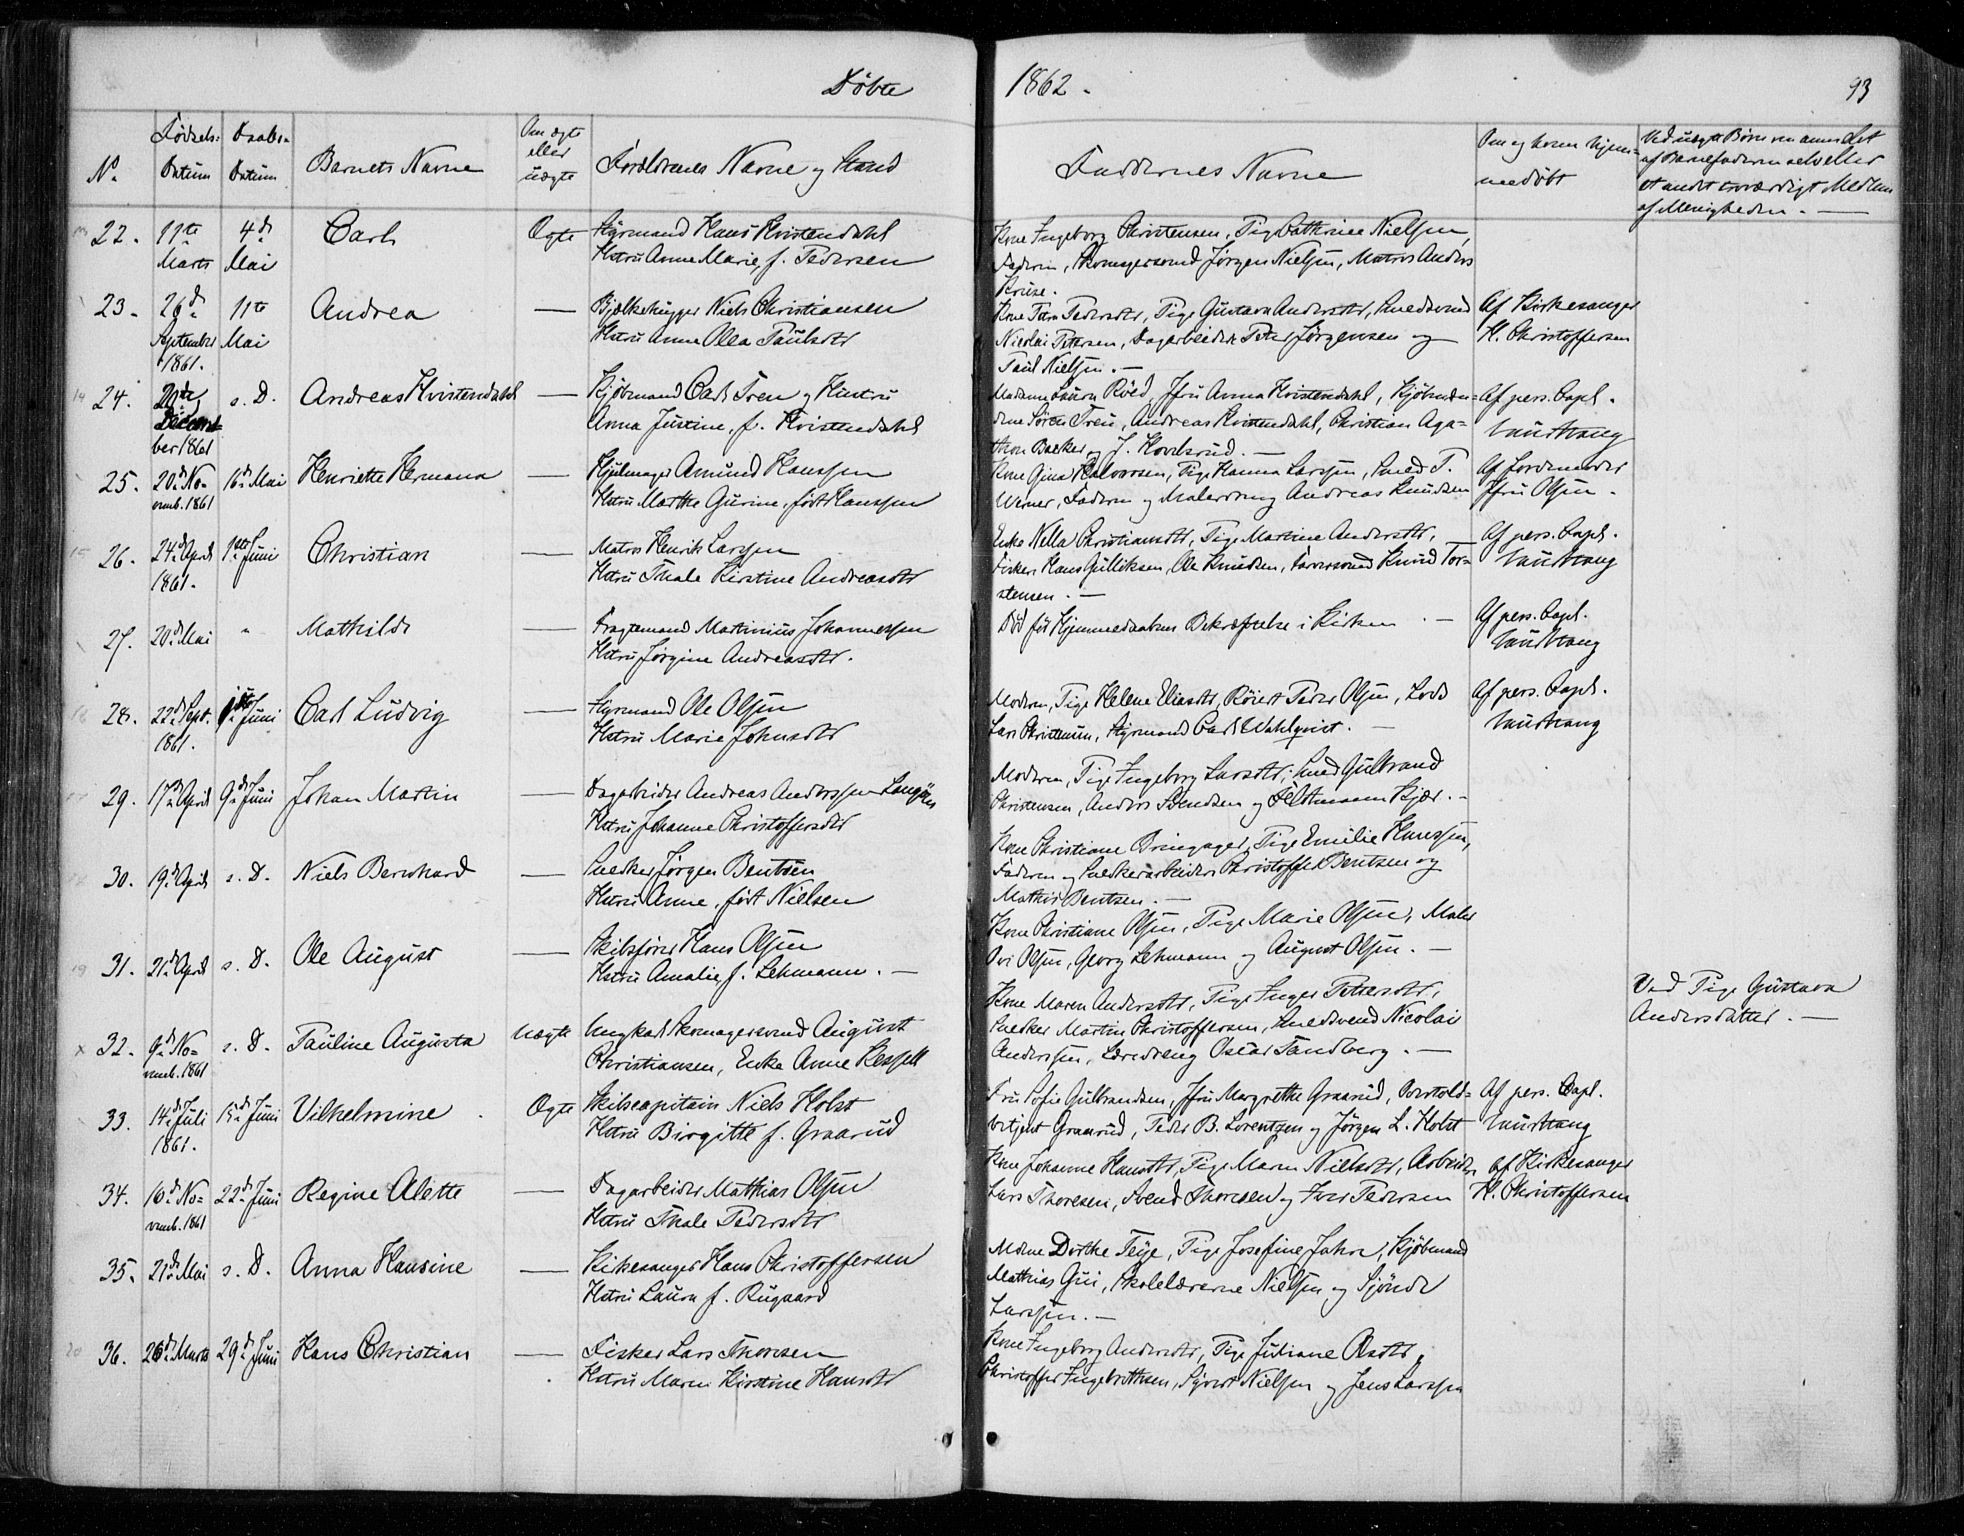 Döbte 1862. 93
No. Fødsels-Datum Daabs-Datum Barnets Navne Om ægte eller uægte Forældrenes Navne og Stand Faddernes Navne Om og hvem hjemmedøbt
22. 11te Marts 4d. Mai Carl Ægte Styrmand Hans Kvistendahl
Hstru Anne Marie, f. Pedersen
Kone Ingeborg Christensen, Pige Cathrine Nielsen,
Faderen, Skomagersvend Jørgen Nielsen, Matros Anders
Kruse.
23. 26d. September 1861. 11te Mai Andrea — Bjelkehugger Niels Christiansen
Hstru Anne Olea Paulsdtr
Pige Gustava Andersdtr, Smedsvend
Nicolai Petersen, Dagarbeider Peter Jørgensen og
Paul Nielsen. —
Af Kirkesanger
H. Christoffersen
24. December 1861 s. D. Andreas Kvistendahl — Kjøbmand Carl Tren og Hustru
Anna Justine, f. Kvistendahl
Madame Laura Röed, Jfru Anna Kvistendahl, Kjøbmæn-
dene Sören Tren, Andreas Kvistendahl, Christian Aga-
thon Backer og J. Hovelsrud. —
Af pers. Capl.
25. 20d. Novemb. 1861 16d. Mai Henriette Hermana — Hjulmager Amund Hanssen
Hstru Marthe Gurine, født Hanssen
Kone Gina Halvorsen, Pige Hanna Larssen, Smed T.
Werner, Faderen og Malerdreng Andreas Knudsen
Af Jordemoder
Jfru Olsen.
26. 24d. April 1861. 1ste Juni Christian — Matros Henrik Larssen
Hstru Thale Kirstine Andreasdtr
Enke Nella Christiansdtr, Pige Martine Andersdtr,
Fisker Hans Gulliksen, Ole Knudsen, Farversvend Knud Tor-
stensen. —
Af pers. Capl.
27. 20d. Mai " Mathilde — Fragtemand Martinius Johannessen
Hstru Jørgine Andreasdtr.
Död för Hjemmedaabens Bekræftelse i Kirken. —
Af pers. Capl.
28. 22d. Sept. 1861. 1ste Juni Carl Ludvig — Styrmand Ole Olsen
Hstru Marie Johnsdtr
Moderen, Pige Helene Eliasdtr, Peder Olsen, Lods
Lars Christensen, Styrmand Carl Wahlqvist. —
Af pers. Capl.
29. 17d. April 9d. Juni Johan Martin — Dagarbeider Andreas Anderssen Langöen
Hstru Johanne Christoffersdtr
Moderen, Pige Ingeborg Larsdtr, Smed Gulbrand
Christensen, Anders Svendsen og Feltmann Kjær. —
30. 19d. April s. D. Niels Bernhard — Snedker Jørgen Bentsen
Hstru Anne, født Nielsen
Kone Christiane Bringager, Pige Emilie Hanssen,
Faderen og Snedkerarbeider Christoffer Bentsen og
Mathis Bentsen. —
31. 21d. April s. D. Ole August — Skibsfører Hans Olsen
Hstru Amalie, f. Lehmann. —
Kone Christiane Olsen, Pige Marie Olsen, Maler
Olsen, Georg Lehmann og August Olsen. —
32. 9d. Novemb. 1861 s. D. Pauline Augusta Uægte Ungkarl Skomagersvend August
Christiansen, Enke Anne Kessell
Kone Maren Andersdtr, Pige Inger Petersdtr,
Snedker Martin Christoffersen, Smedsvend Nicolai
Anderssen, Læredreng Oscar Sandberg. —
Ved Pige Gustava
Andersdatter. —
33. 14d. Juli 1861. 15d. Juni Vilhelmine Ægte Skibscapitain Niels Holst
Hstru Birgitte f. Graarud
Fru Sofie Gulbrandsen, Jfru Margrethe Graarud, Overtold-
betjent Graarud, Peder B. Lorentzen og Jørgen L. Holst
Af pers. Capl.
34. 10d. Novemb. 1861 22d. Juni Regine Alette — Dagarbeider Mathias Olsen
Hstru Thale Pedersdtr
Kone Johanne Hansdtr, Pige Maren Nielsdtr, Arbeider
Lars Thoresen, Svend Thoresen og Iver Pedersen
Af Kirkesanger
H. Christoffersen
35. 21d. Mai s. D. Anna Hansine — Kirkesanger Hans Christoffersen
Hstru Laura f. Rugaard
Mdme Dorthe Teye, Pige Josefine Jahre, Kjøbmand
Mathias Gui, Skolelærerne Nielsen og Sjönde
Larssen. —
36. Marts 29d. Juni Hans Christian — Fisker Lars Thoresen
Hstru Maren Kirstine Hansdtr
Kone Ingeborg Andersdtr, Pige Juliane Olsdtr,
Christoffer Ingebrethsen, Syvert Nielsen og Jens Larssen